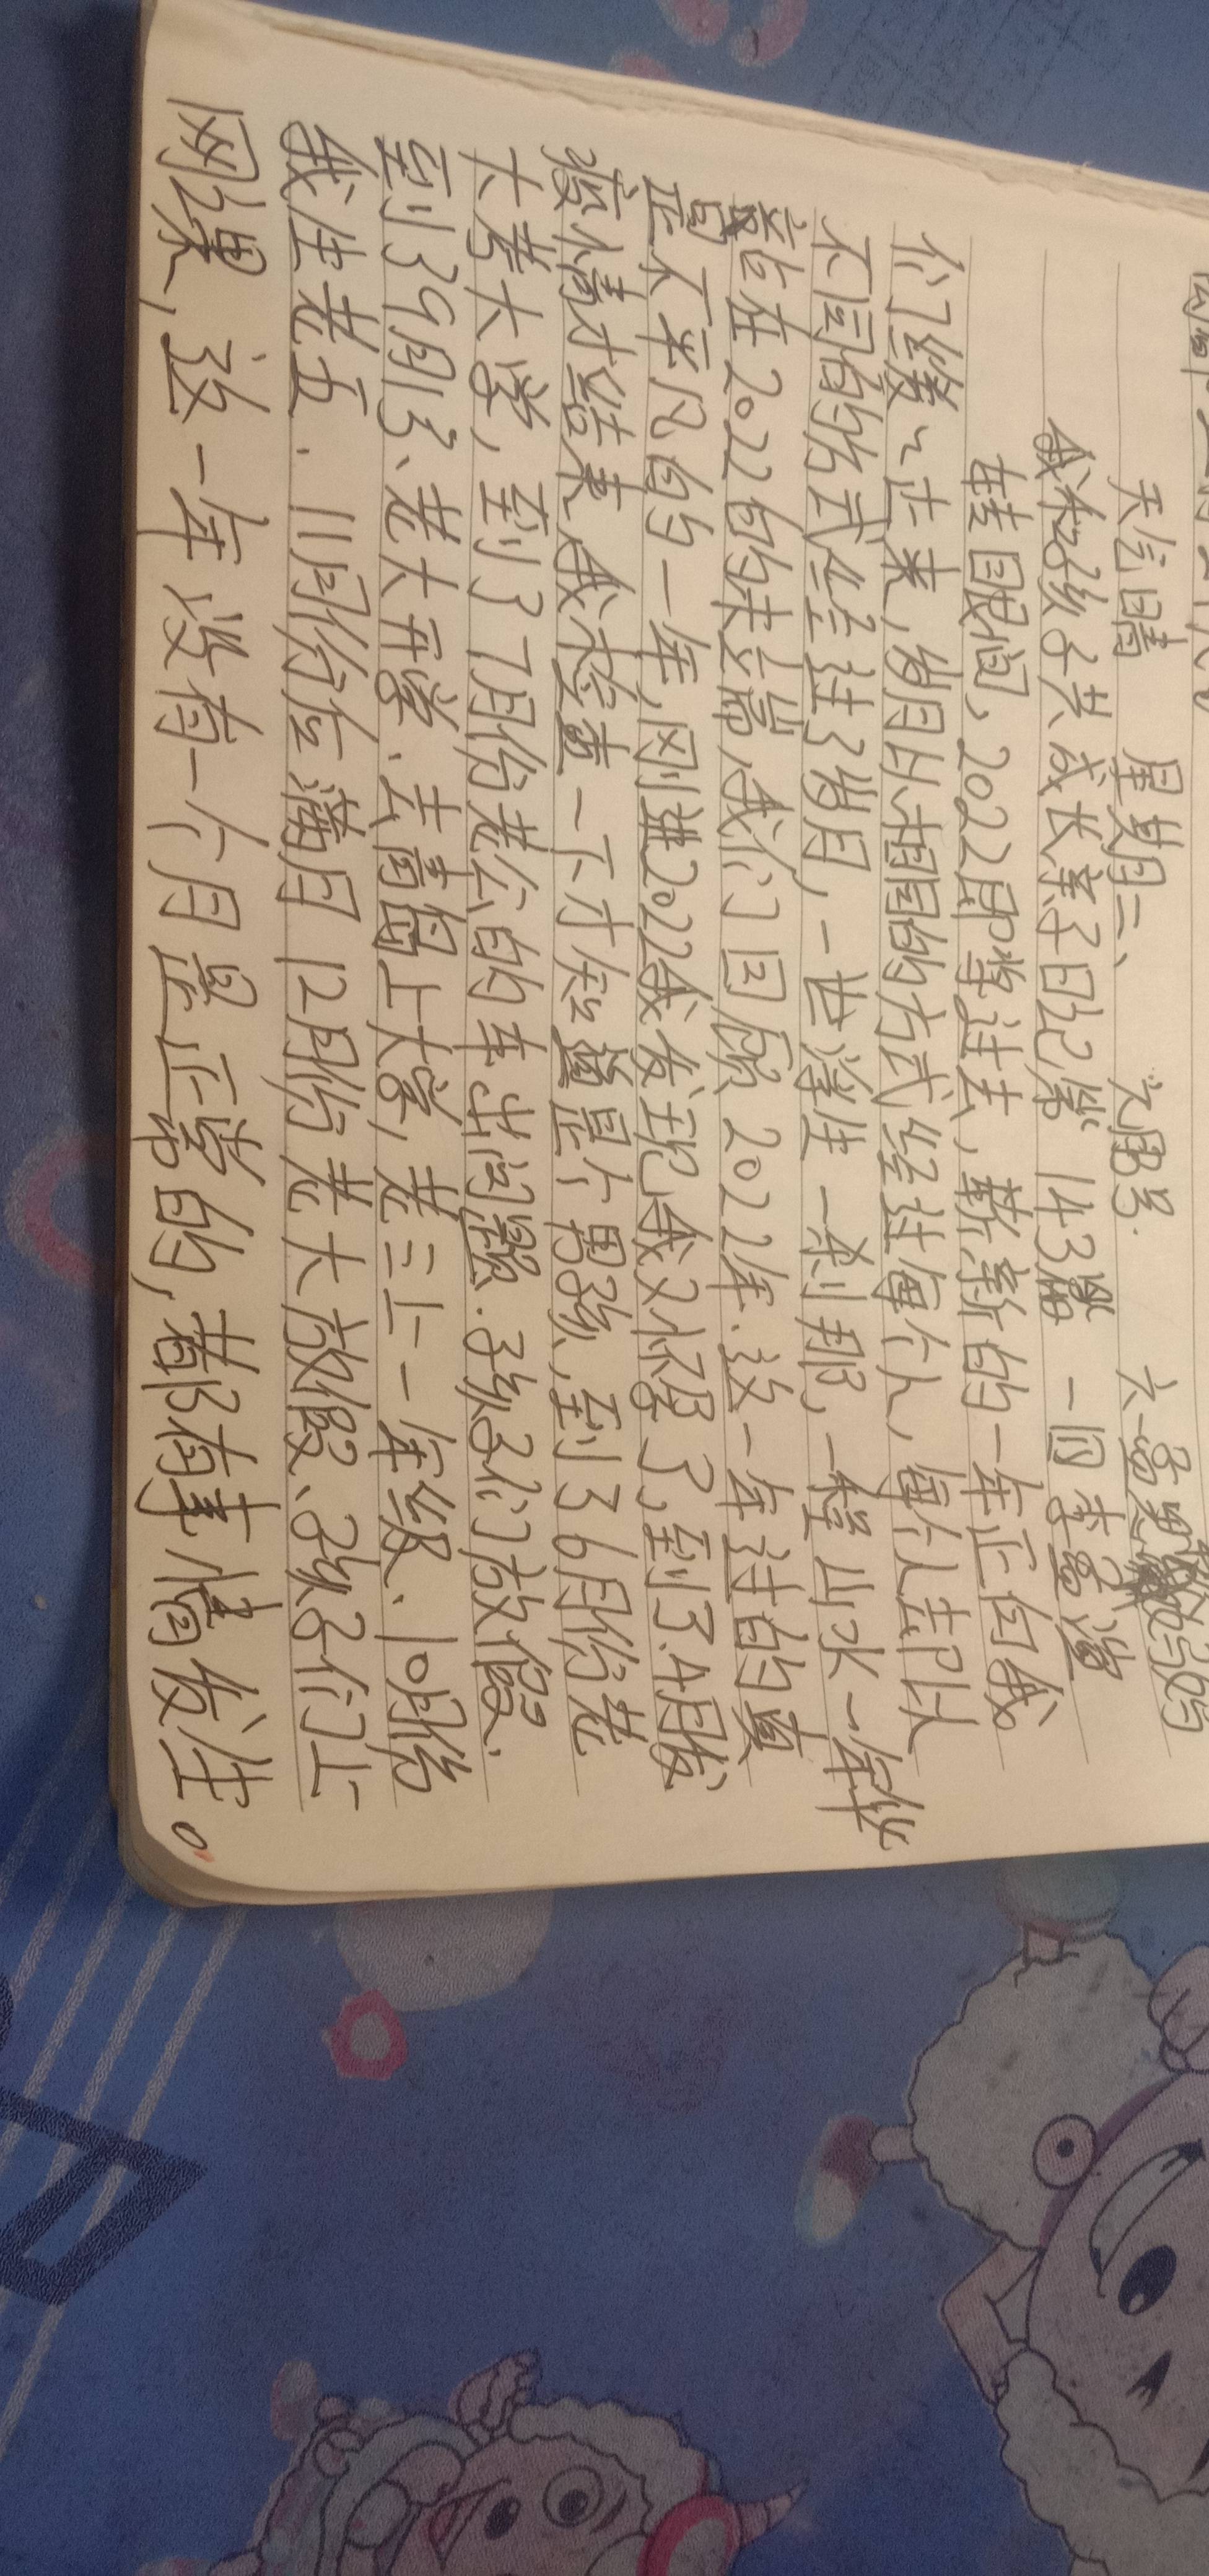 天气晴 星期二、 六
我和孩子共成长亲子日记第 143篇 一
娃眼间, 2022即将过去, 新新的一年正向我
们缓々走来, 岁月以相同的方式经过每个人, 每个人却以
不同的方式经过了岁月, 一世浮生 一刹那, 一程山水一年华
站在2022的末端, 我们回顾 2022年. 这一年过的真
是不平凡的一年, 刚进2022我发现我又怀孕了, 到了3.4月份
疫情才结束, 我检查一下才知道是个男孩, 到了6月份老
大考大学, 到了7月份老公的车出问题. 孩子们放假.
到了9月13、老大开学. 去青岛上大学, 老三上一年级. 10月份
我生老五. 11月份在满月 12月份老大放假、孩子们上
网课, 这一年没有一个月是正常的, 都有事情发生。